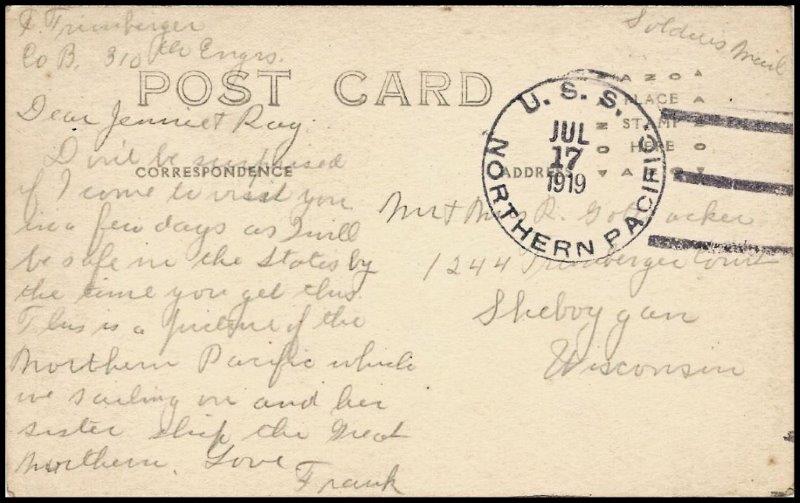 F. Trimberger
Co B. 310th Engrs.
Soldiers Mail
POST CARD
U.S.S. NORTHERN PACIFIC
JUL
17
1919
AZO
PLACE
STAMP
HERE
AZO
CORRESPONDENCE
ADDRESS
Dear Jennie & Ray
Don't be surprised
if I come to visit you
in a few days as I will
be safe in the States by
the time you get this.
This is a picture of the
Northern Pacific which
we sailing on and her
sister ship the Great
Northern. Love
Frank
Mr & Mrs R.
1244 Trimberger Court
Sheboygan
Wisconsin